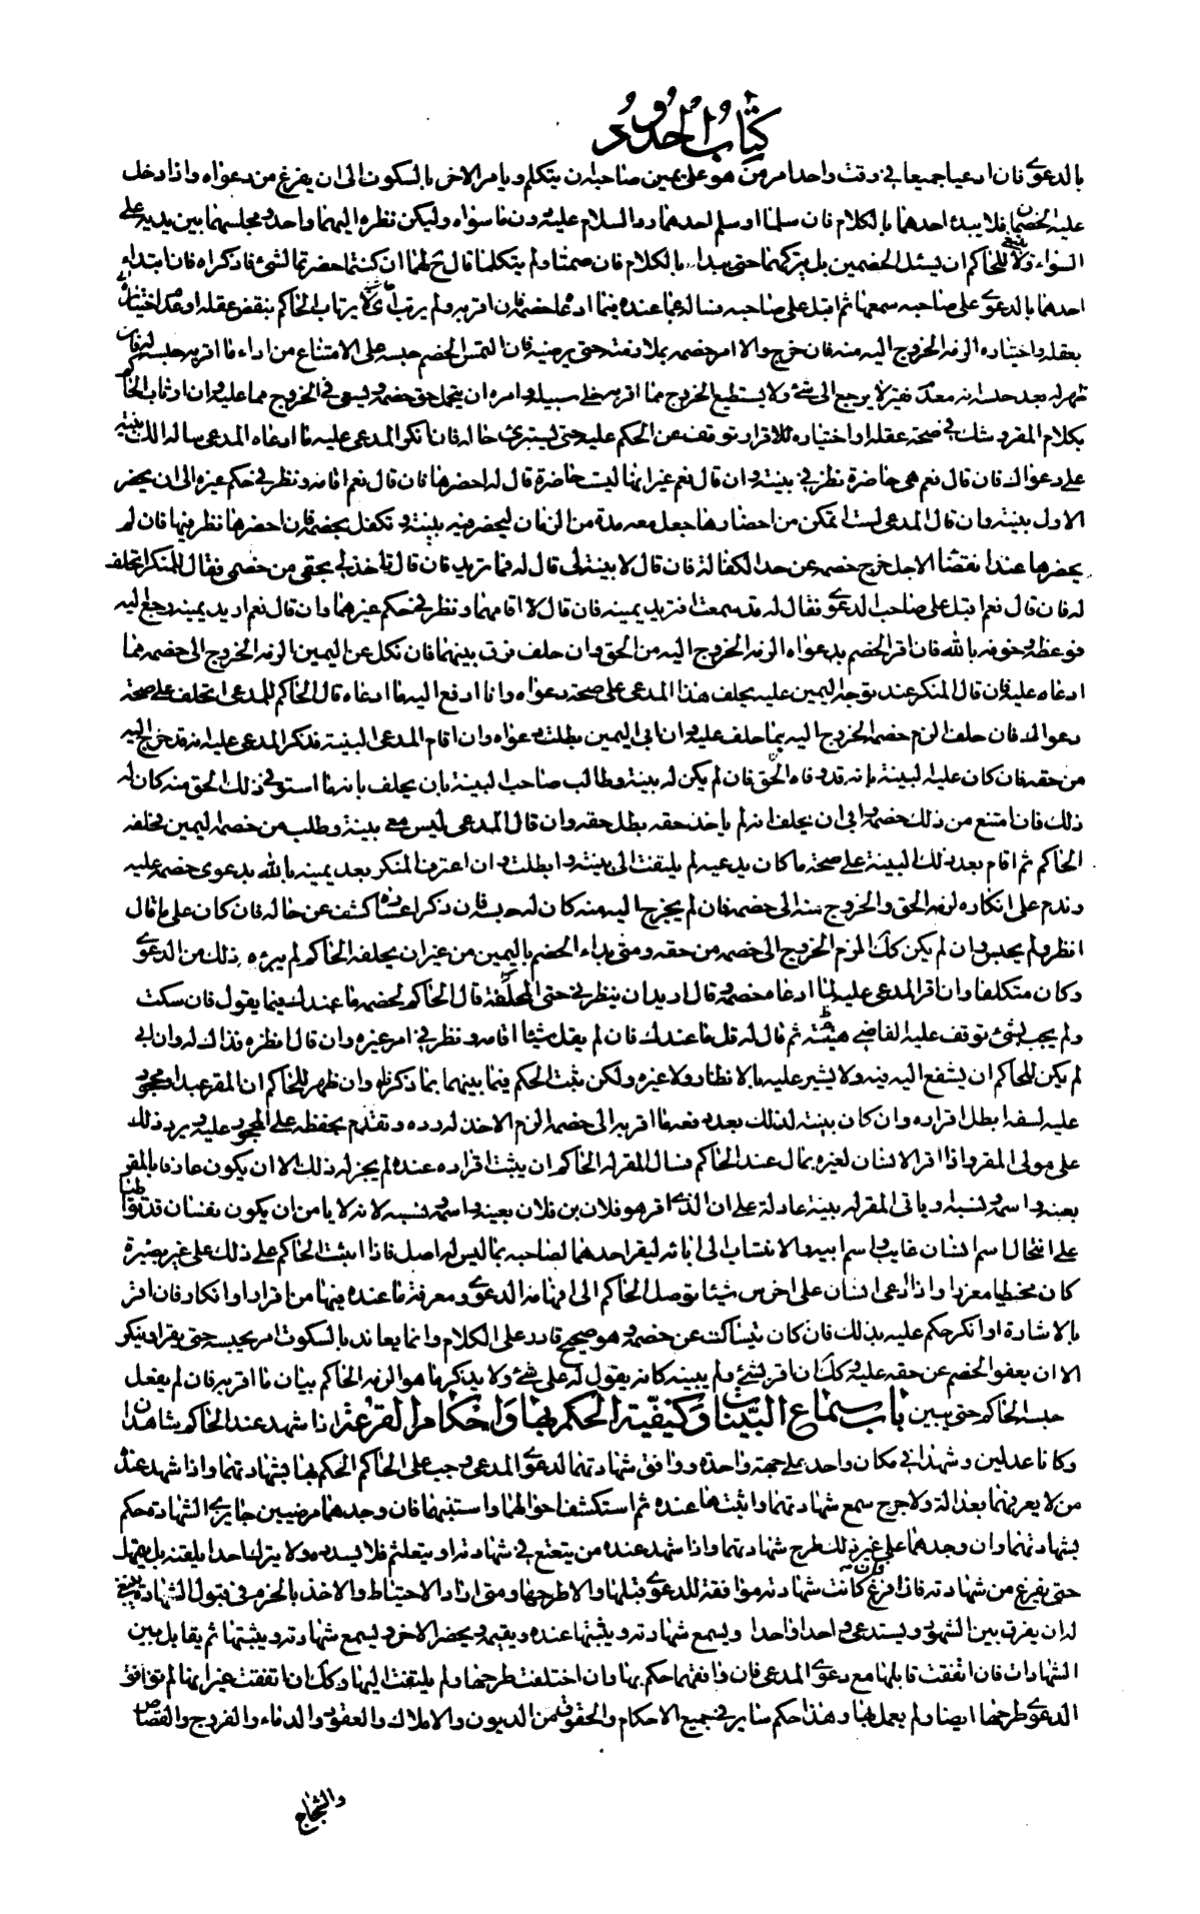 كتاب الحدود
بالدعوى فان ادعيا جميعا في وقت واحد امر من هو على يمين صاحبه ان يتكلم ويامر الاخر بالسكوت الى ان يفرغ من دعواه واذا دخل
عليه الخصمان فلا يبدء احدهما بالكلام فان سلما او سلم احدهما رد السلام عليه دون ما سواه وليكن نظره اليهما واحدا ومجلسهما بين يديه على
السواء ولا ينبغي للحاكم ان يسئل الخصمين بل يتركهما حتى يبدا بالكلام فان صمتا ولم يتكلما قال ح لهما ان كنتما حضرتما لشئ فاذكراه فان ابتداء
احدهما بالدعوى على صاحبه سمعها ثم اقبل على صاحبه فساله عما عنده فيما ادعاه خصمه فان اقر به ولم يرتب الحاكم بنقص عقله او عدم اختياره
بعقله واختياره الزمه الخروج اليه منه فان خرج والا امر خصمه بملازمته حتى يرضيه فان التمس الخصم حبسه على الامتناع من اداء ما اقر به حبسه له فان
ظهر له بعد حبسه انه معدم فقير لا يرجع الى شئ ولا يستطيع الخروج مما اقر به خلى سبيله وامره ان يتمحل حق خصمه ويسعى في الخروج مما عليه وان ارتاب الحاكم
بكلام المقر وشك في صحة عقله او اختياره للاقرار توقف عن الحكم عليه حتى يستبرئ حاله فان انكر المدعى عليه ما ادعاه المدعي ساله الك بينة
على دعواك فان قال نعم هي حاضرة نظر في بينته وان قال نعم غير انها ليست حاضرة قال له احضرها فان قال نعم اقامه ونظر في حكم غيره الى ان يحضر
الاول بينته وان قال المدعي لست اتمكن من احضارها جعل معه مدة من الزمان ليحضر فيه بينته وتكفل بخصمه فان احضرها نظر فيها فان لم
يحضرها عند انقضاء الاجل خرج خصمه عن حد الكفالة فان قال لا بينة لي قال له فما تريد فان قال تاخذ لي بحقي من خصمي فقال للمنكر اتحلف
له فان قال نعم اقبل على صاحب الدعوى فقال له قد سمعت افتريد يمينه فان قال لا اقامهما ونظر في حكم غيرهما وان قال نعم اريد يمينه رجع اليه
فوعظه وخوفه بالله فان اقر الخصم بدعواه الزمه الخروج اليه من الحق وان حلف فرق بينهما فان نكل عن اليمين الزمه الخروج الى خصمه مما
ادعاه عليه فان قال المنكر عند توجه اليمين عليه يحلف هذا المدعي على صحة دعواه وانا ادفع اليه ما ادعاه قال الحاكم للمدعي اتحلف على صحة
دعواك فان حلف الزم خصمه الخروج اليه بما حلف عليه وان ابى اليمين بطلت دعواه وان اقام المدعي البينة فذكر المدعى عليه انه قد خرج اليه
من حقه فان كان عليه البينة بانه قد وفاه الحق فان لم يكن له بينة وطالب صاحب البينة بان يحلف بانه ما استوفى ذلك الحق منه كان له
ذلك فان امتنع من ذلك خصمه وابى ان يحلف انه لم ياخذ حقه بطل حقه وان قال المدعي ليس معي بينة وطلب من خصمه اليمين فحلفه
الحاكم ثم اقام بعد ذلك البينة على صحة ما كان يدعيه لم يلتفت الى بينته وابطلت وان اعترف المنكر بعد يمينه بالله بدعوى خصمه عليه
وندم على انكاره لزمه الحق والخروج منه الى خصمه فان لم يخرج اليه منه كان له حبسه فان ذكر اعساره كشف عن حاله فان كان على ما قال
انظر ولم يحبس وان لم يكن كك الزم الخروج الى خصمه من حقه ومتى بداء الخصم باليمين من غير ان يحلفه الحاكم لم يبرءه ذلك من الدعوى
وكان متكلفا وان اقر المدعى عليه بما ادعاه خصمه وقال اريد ان ينظر في حتى اتمحله قال الحاكم لخصمه ما عندك فيما يقول فان سكت
ولم يجب بشئ توقف عليه القاضي هنيئة ثم قال له قل ما عندك فان لم يقل شيئا اقامه ونظر في امر غيره وان قال انظره فذاك له وان ابى
لم يكن للحاكم ان يشفع اليه فيه ولا يشير عليه بالانظار ولا غيره ولكن يثبت الحكم فيما بينهما بما ذكرناه وان ظهر للحاكم ان المقر عبد او محجور
عليه لسفه ابطل اقراره وان كان بينته لذلك بعد دفعه ما اقر به الى خصمه الزم الاخذ له رده وتقدم بحفظه على المحجور عليه ويرد ذلك
على مولى المقر واذا اقر الانسان لغيره بمال عند الحاكم فسال المقر له الحاكم ان يثبت اقراره عنده لم يجز له ذلك الا ان يكون عارفا بالمقر
بعينه واسمه ونسبه او ياتي المقر له ببينة عادلة على ان الذي اقر هو فلان بن فلان بعينه واسمه ونسبه لانه لا يامن ان يكون نفسان قد تواطئا
على انتحال اسم انسان غايب واسم ابيه والانتساب الى ابائه ليقر احدهما لصاحبه بما ليس له اصل فاذا اثبت الحاكم على ذلك على غير بصيرة
كان مخطيا مغررا واذا ادعى انسان على اخرس شيئا توصل الحاكم الى افهامه الدعوى ومعرفة ما عنده فيها من اقرار او انكار فان اقر
بالاشارة او انكر حكم عليه بذلك فان كان يتساكت عن خصمه وهو صحيح قادر على الكلام وانما يعاند بالسكوت امر بحبسه حتى يقر او ينكر
الا ان يعفو الخصم عن حقه عليه وكك ان اقر بشئ ولم يبينه كانه يقول له على شئ ولا يذكر ما هو الزمه الحاكم بيان ما اقر به فان لم يفعل
حبسه الحاكم حتى يبين باب سماع البينات وكيفية الحكم بها واحكام القرعة اذا شهد عند الحاكم شاهدان
وكانا عدلين وشهدا في مكان واحد على جهة واحدة ووافق شهادتهما لدعوى المدعي وجب على الحاكم الحكم بها بشهادتهما واذا شهد عنده
من لا يعرفهما بعدالة ولا جرح سمع شهادتهما واثبتها عنده ثم استكشف احوالهما واستنبهما فان وجدهما مرضيين جايزى الشهادة حكم
بشهادتهما وان وجدهما على غير ذلك طرح شهادتهما واذا شهد عنده من يتعتع في شهادته او يتعلثم فلا يسدده ولا يترك احدا يلقنه بل يمهله
حتى يفرغ من شهادته فاذا فرغ فان كانت شهادته موافقة للدعوى قبلها والا طرحها ومتى اراد الاحتياط والاخذ بالحزم في قبول الشهادة ينبغي
له ان يفرق بين الشهود ويستدعي واحدا واحدا ويسمع شهادته ويثبتها عنده ويقيمه ويحضر الاخر ويسمع شهادته ويثبتها ثم يقابل بين
الشهادات فان اتفقت قابلها مع دعوى المدعي فان وافقتها حكم بها وان اختلفت طرحها ولم يلتفت اليها وكك ان اتفقت غير انها لم توافق
الدعوى طرحها ايضا ولم يعمل بها وهذا حكم ساير في جميع الاحكام والحقوق من الديون والاملاك والعقود والدماء والفروج والقصاص
والشجاج